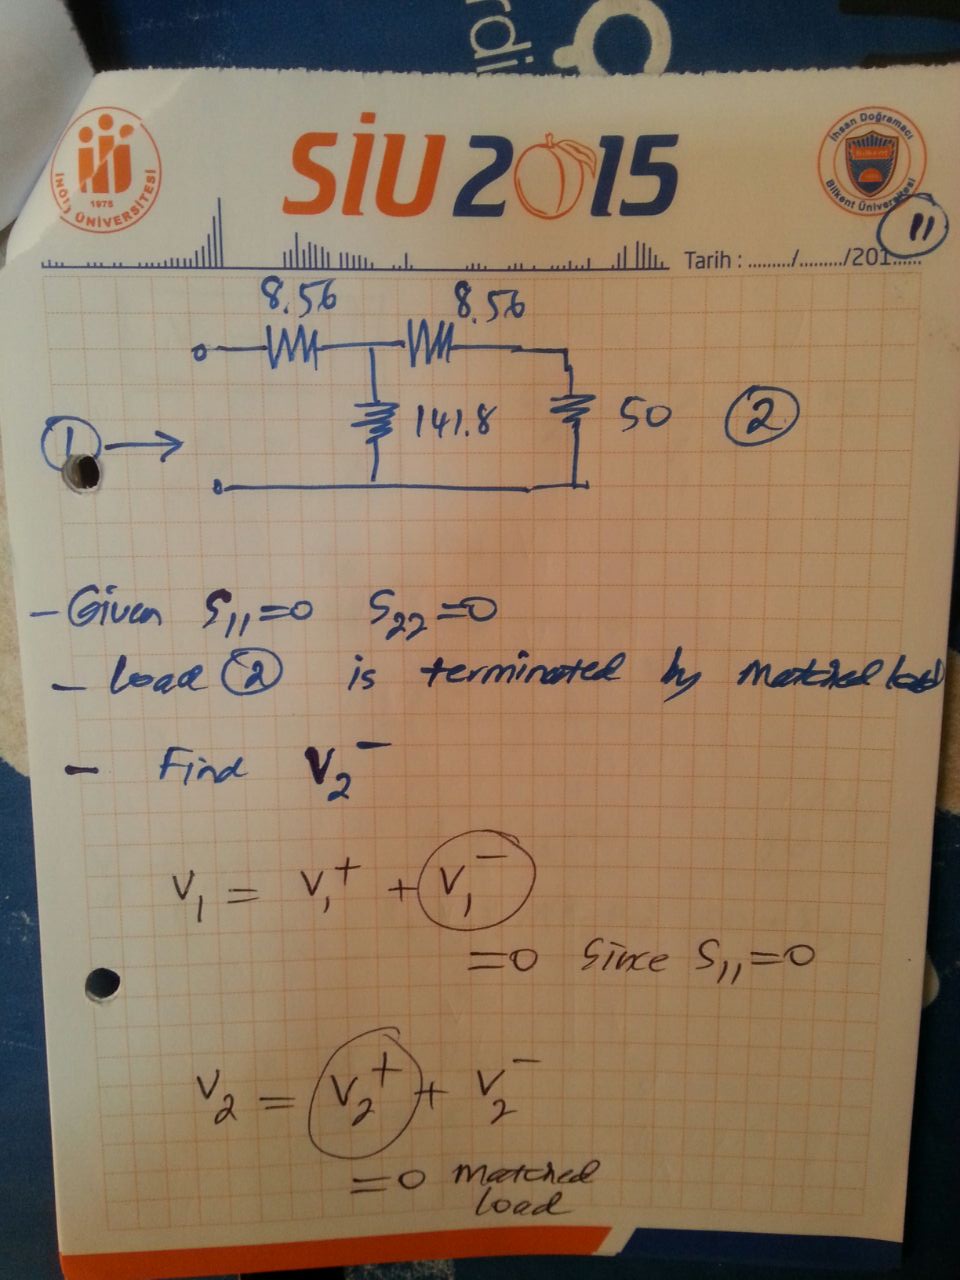 rdi
SİU 2015
İNÖNÜ ÜNİVERSİTESİ
1975
İhsan Doğramacı
Bilkent Üniversitesi
11
Tarih : ........./........./201......
8.56 8.56
1 141.8 50 2
- Given S11=0 S22=0
- Load 2 is terminated by matched load
- Find V2-
V1 = V1+ + V1-
=0 Since S11=0
V2 = V2+ + V2-
=0 matched
load